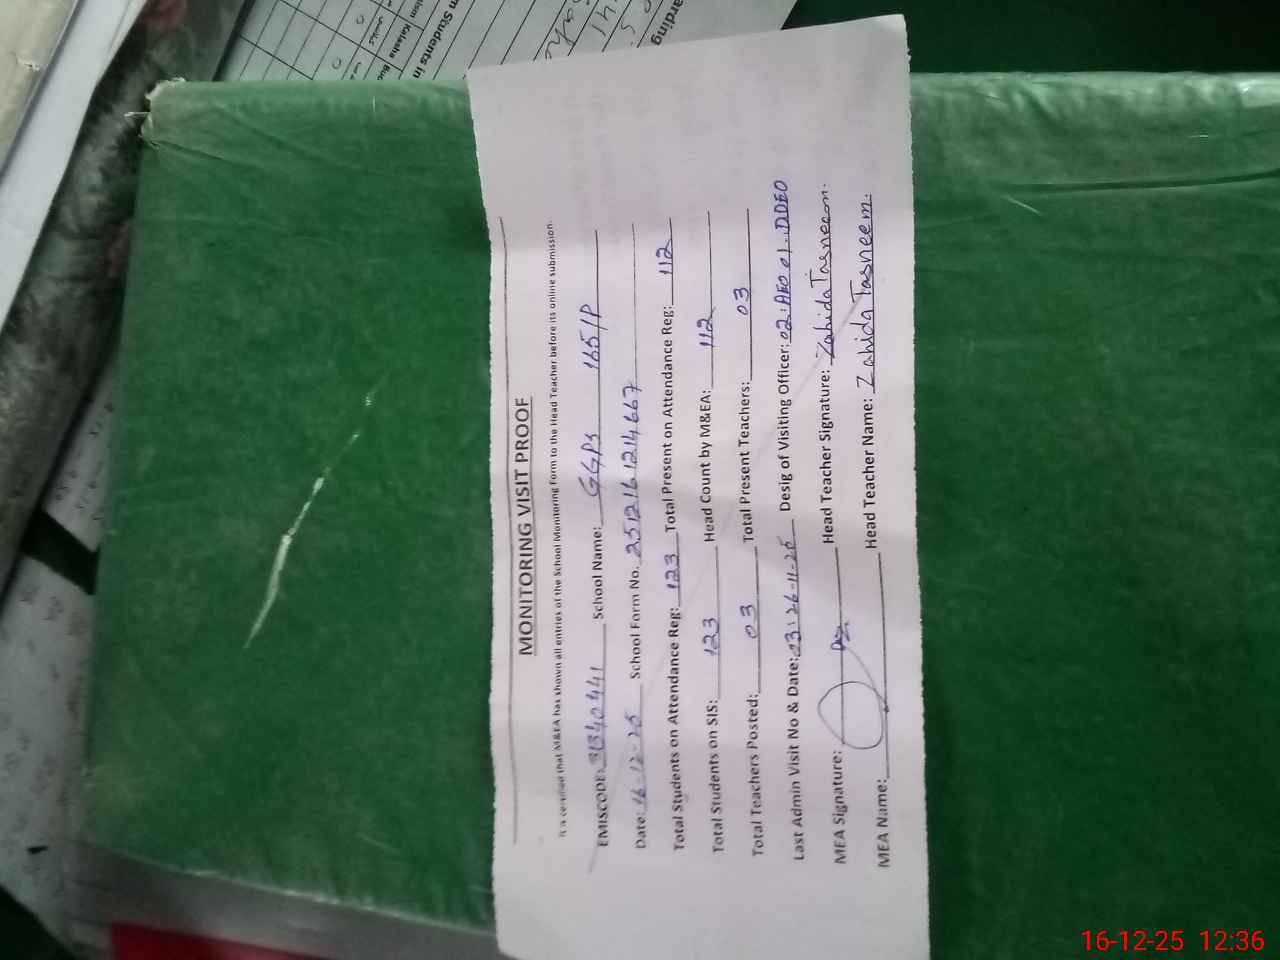 MONITORING VISIT PROOF
It is certified that M&EA has shown all entries of the School Monitoring Form to the Head Teacher before its online submission.
EMISCODE: 31340441 School Name: GGPS 165/P
Date: 16-12-25 School Form No. 251216 1214667
Total Students on Attendance Reg: 123 Total Present on Attendance Reg: 112
Total Students on SIS: 123 Head Count by M&EA: 112
Total Teachers Posted: 03 Total Present Teachers: 03
Last Admin Visit No & Date: 03: 26-11-25 Desig of Visiting Officer: 02: AEO 01. DDEO
MEA Signature: Head Teacher Signature: Zahida Tasneem.
MEA Name: Head Teacher Name: Zahida Tasneem.
m Students in
Kalasha
arding
16-12-25 12:36